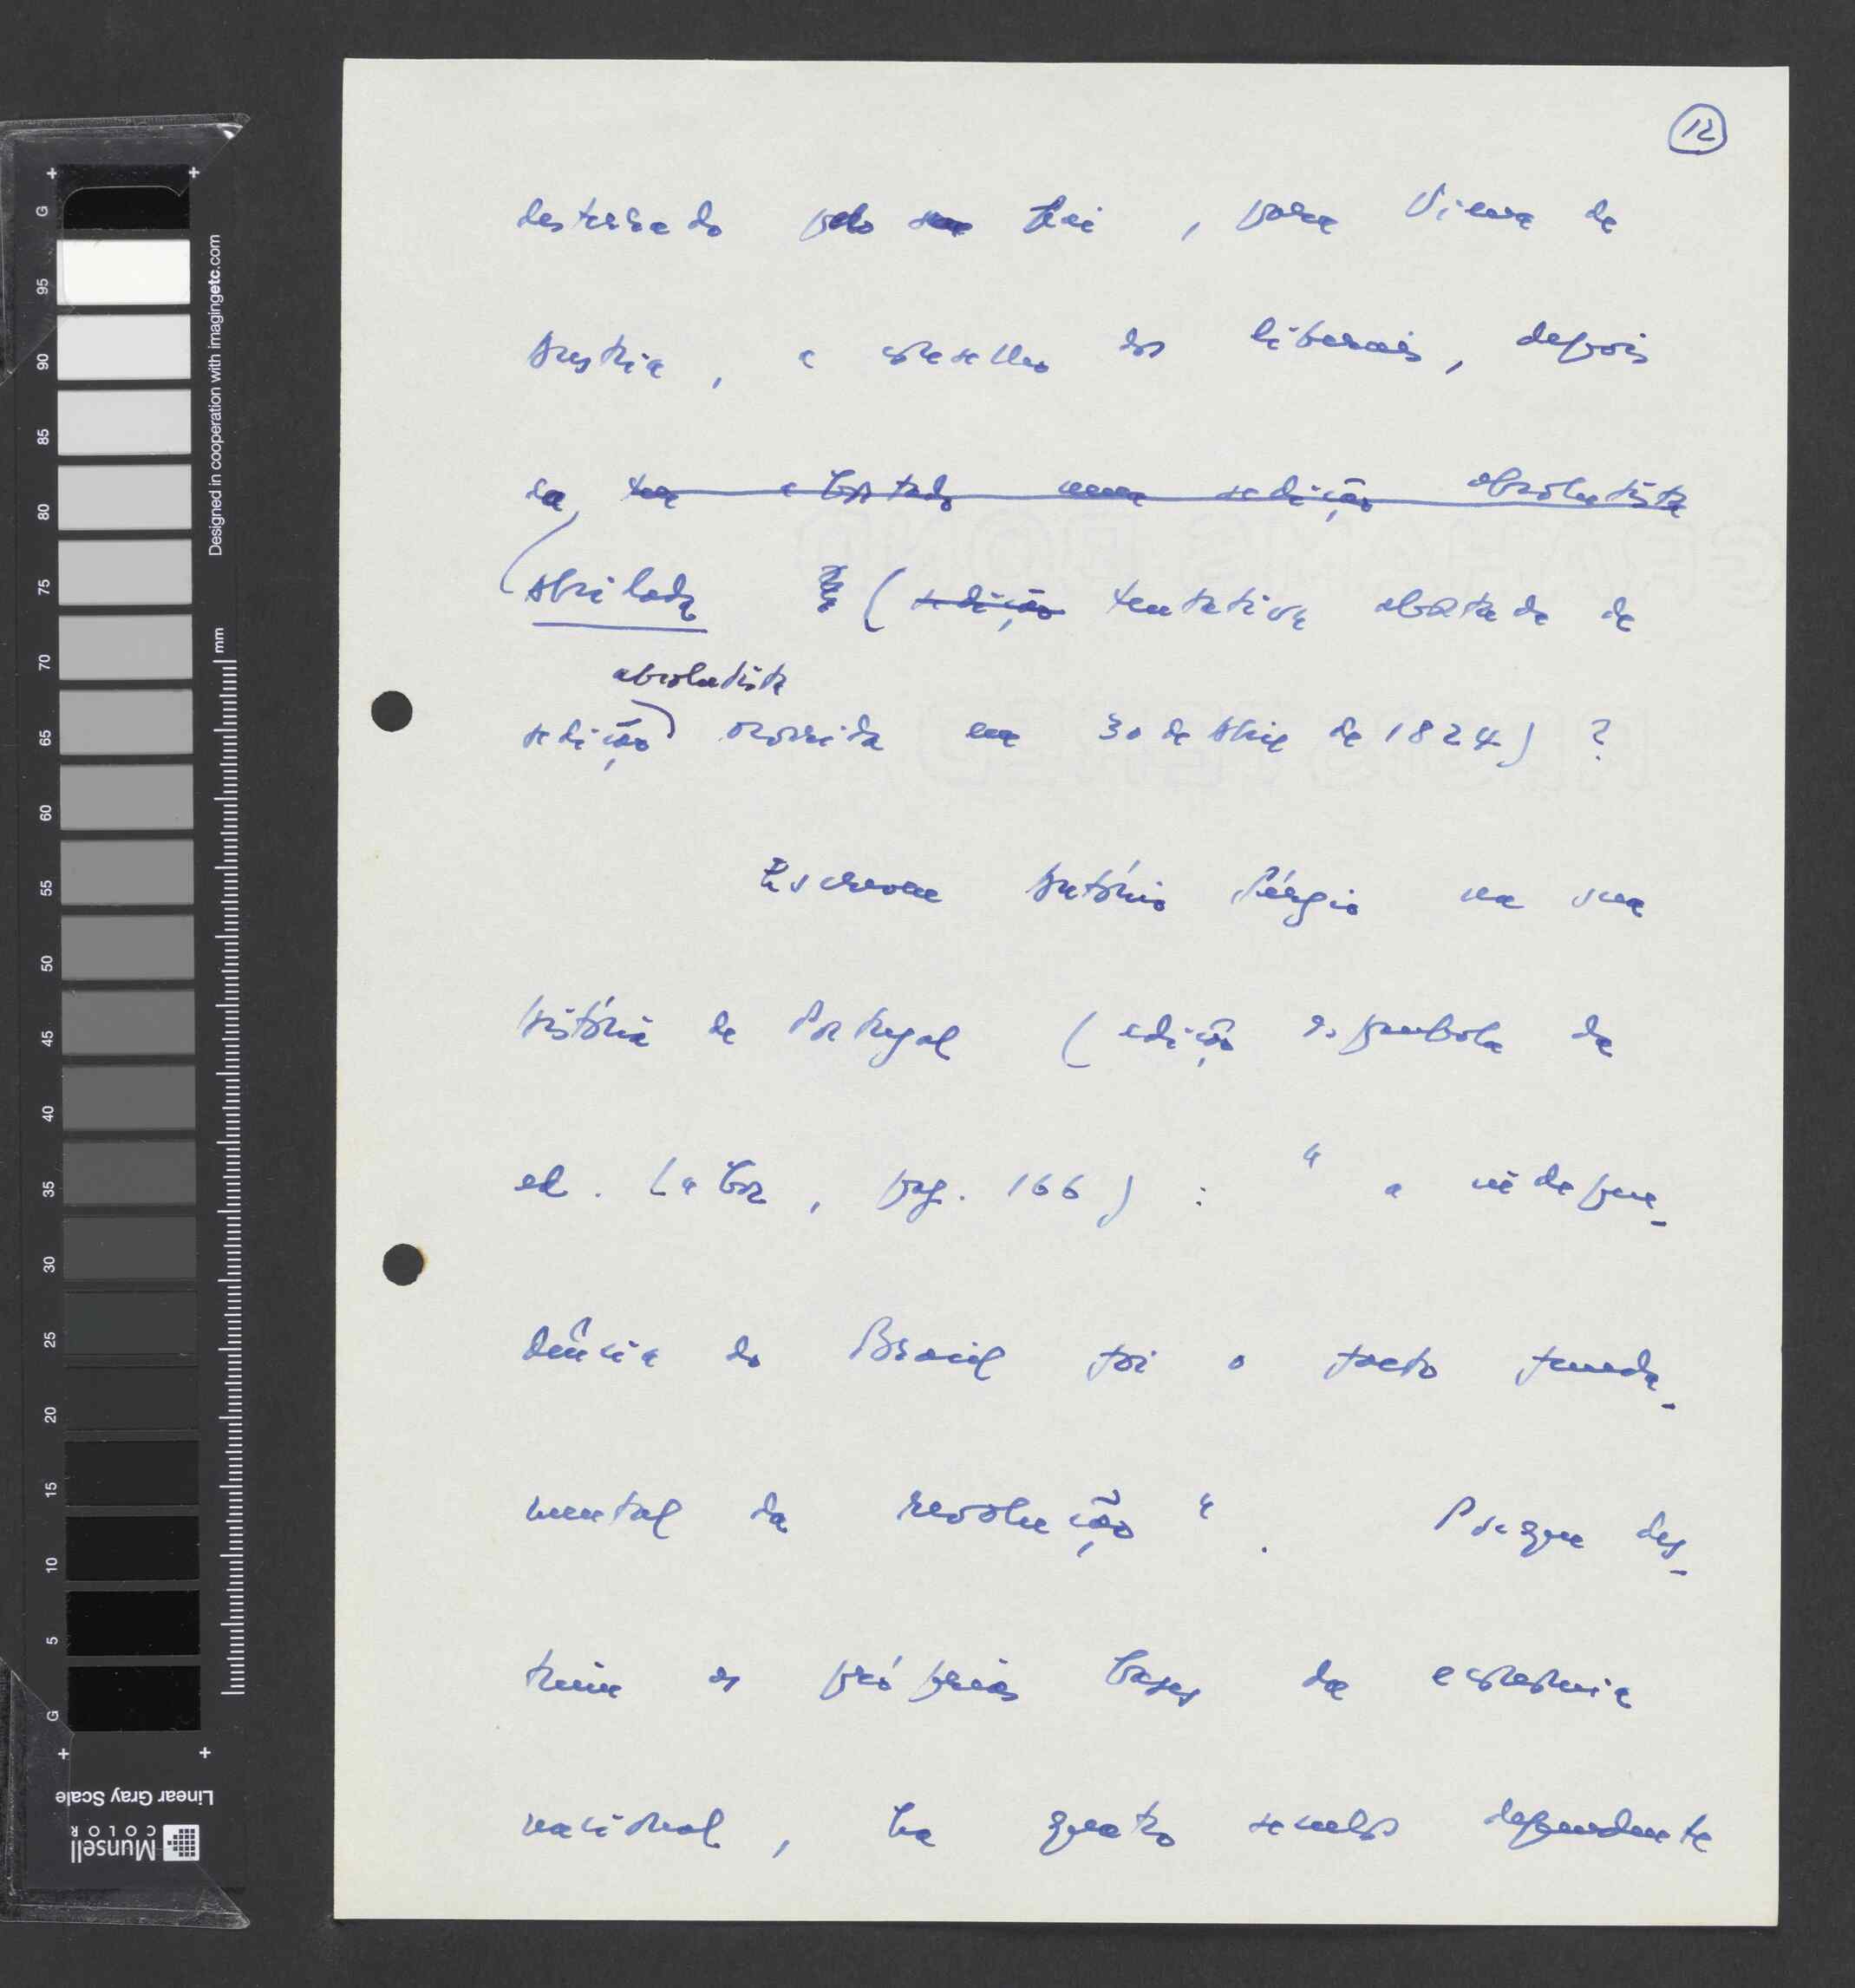 12
desterrado pelo seu Pai, para Viena de
Austria, a conselho dos liberais, depois
da ter abortado uma sedição absolutista
Abrilada (sedição tentativa abortada de
absolutista
sedição ocorrida em 30 de Abril de 1824) ?
Escreveu António Sérgio na sua
História de Portugal (edição espanhola da
ed. Labor, pag. 166) : "a indepen-
dência do Brasil foi o facto funda-
mental da revolução". Porque des-
truiu as próprias bases da economia
nacional, ha quatro seculos dependente
G 95 90 85 80 75 70 65 60 55 50 45 40 35 30 25 20 15 10 5 G
mm
Designed in cooperation with imagingetc.com
Linear Gray Scale
Munsell
COLOR